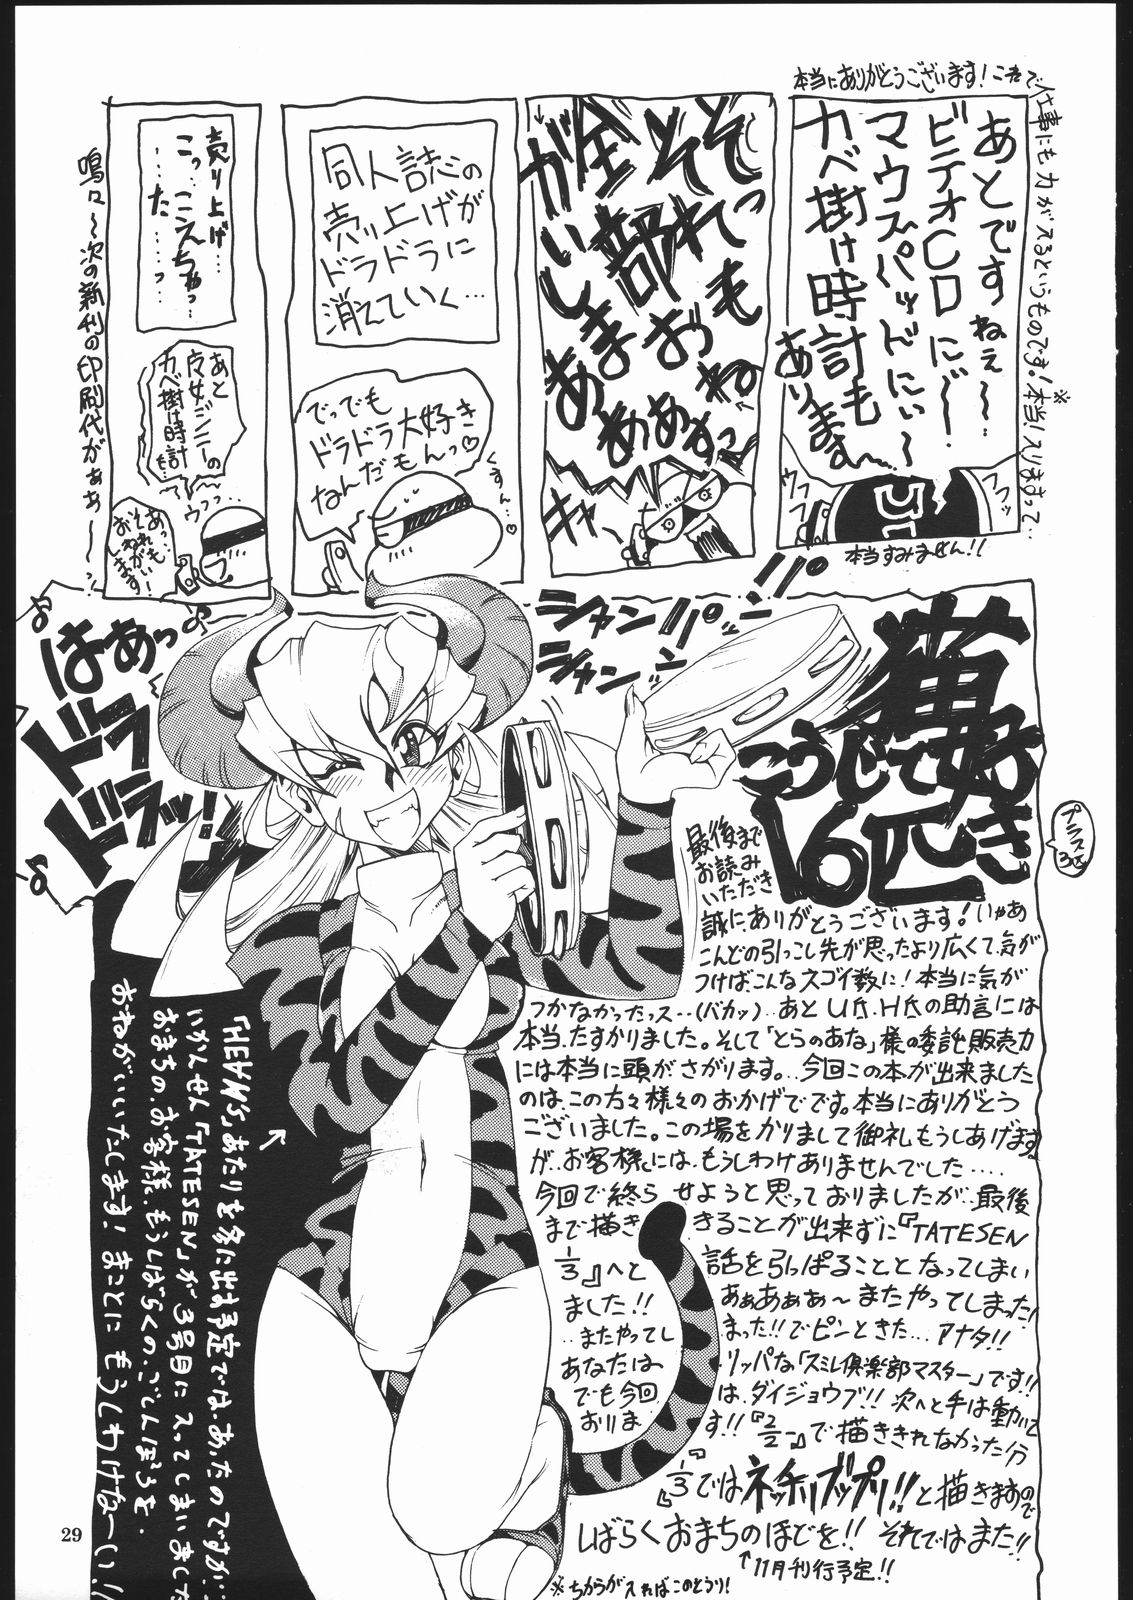 本当にありがとうございます！これで仕事にも力が入るというものです！※本当！入りまくって‥
あとですねぇ〜
ビデオCDにぃ〜
マウスパッドにぃ〜
カベ掛け時計も
ありまぁす〜
ウフフ
フッフッ
本当すみません！！
そそそれっ
とれもおねぁ
全部おああすっ
がいしまああ
キャー
同人誌の
売り上げが
ドラドラに
消えていく…
でっでも
ドラドラ大好き
なんだもんっ♡
くすん…♡
売り上げ…
こっ…こえちゃっ…
……た………っ
あと
魔女ジニーの
カベ掛け時計も
ウフッ…
あっ
それも
おねがい
します！
鳴々〜次の新刊の印刷代がぁぁ〜〜っ
ジャンパンパン
ジャンジャン
はあっ
ドラドラッ！
猫好き
こうじて
16匹
プラス3匹
最後まで
お読み
いただき
誠にありがとうございます！いやあ
こんどの引っこし先が思ったより広くて、気が
つけば、こんなスゴイ数に！本当に気が
つかなかったっス‥（バカッ）‥あとU氏、H氏の助言には
本当、たすかりました。そして「とらのあな」様の委託販売力
には本当に頭がさがります。‥今回この本が出来ました
のは、この方々様々のおかげでです。本当にありがとう
ございました。この場をかりまして御礼もうしあげます。
が‥お客様には、もうしわけありませんでした‥‥
今回で終らせようと思っておりましたが‥最後
まで描ききることが出来ずに『TATESEN
1/3』へと話を引っぱることとなってしまい
ました！！ああああぁ〜またやってしまった！
‥またやってしまった！！でピンときた…アナタ！！
あなたはリッパな「スミレ倶楽部マスター」です！！
でも今回は、ダイジョウブ！！次へと手は動いて
おります！！『2/2』で描ききれなかった分
『1/3』ではネッチリブップリ！！と描きますので
しばらくおまちのほどを！！それではまた！！
↑11月刊行予定！！
※ちからが入ればこのとうり！
「HEAVN'S」あたりを冬に出す予定では、あったのですが…
いかんせん「TATESEN」が3号目に入ってしまいました
おまちの、お客様、もうしばらくの、ごしんぼうを
おねがいいたします！まことにもうしわけなーい！！
29